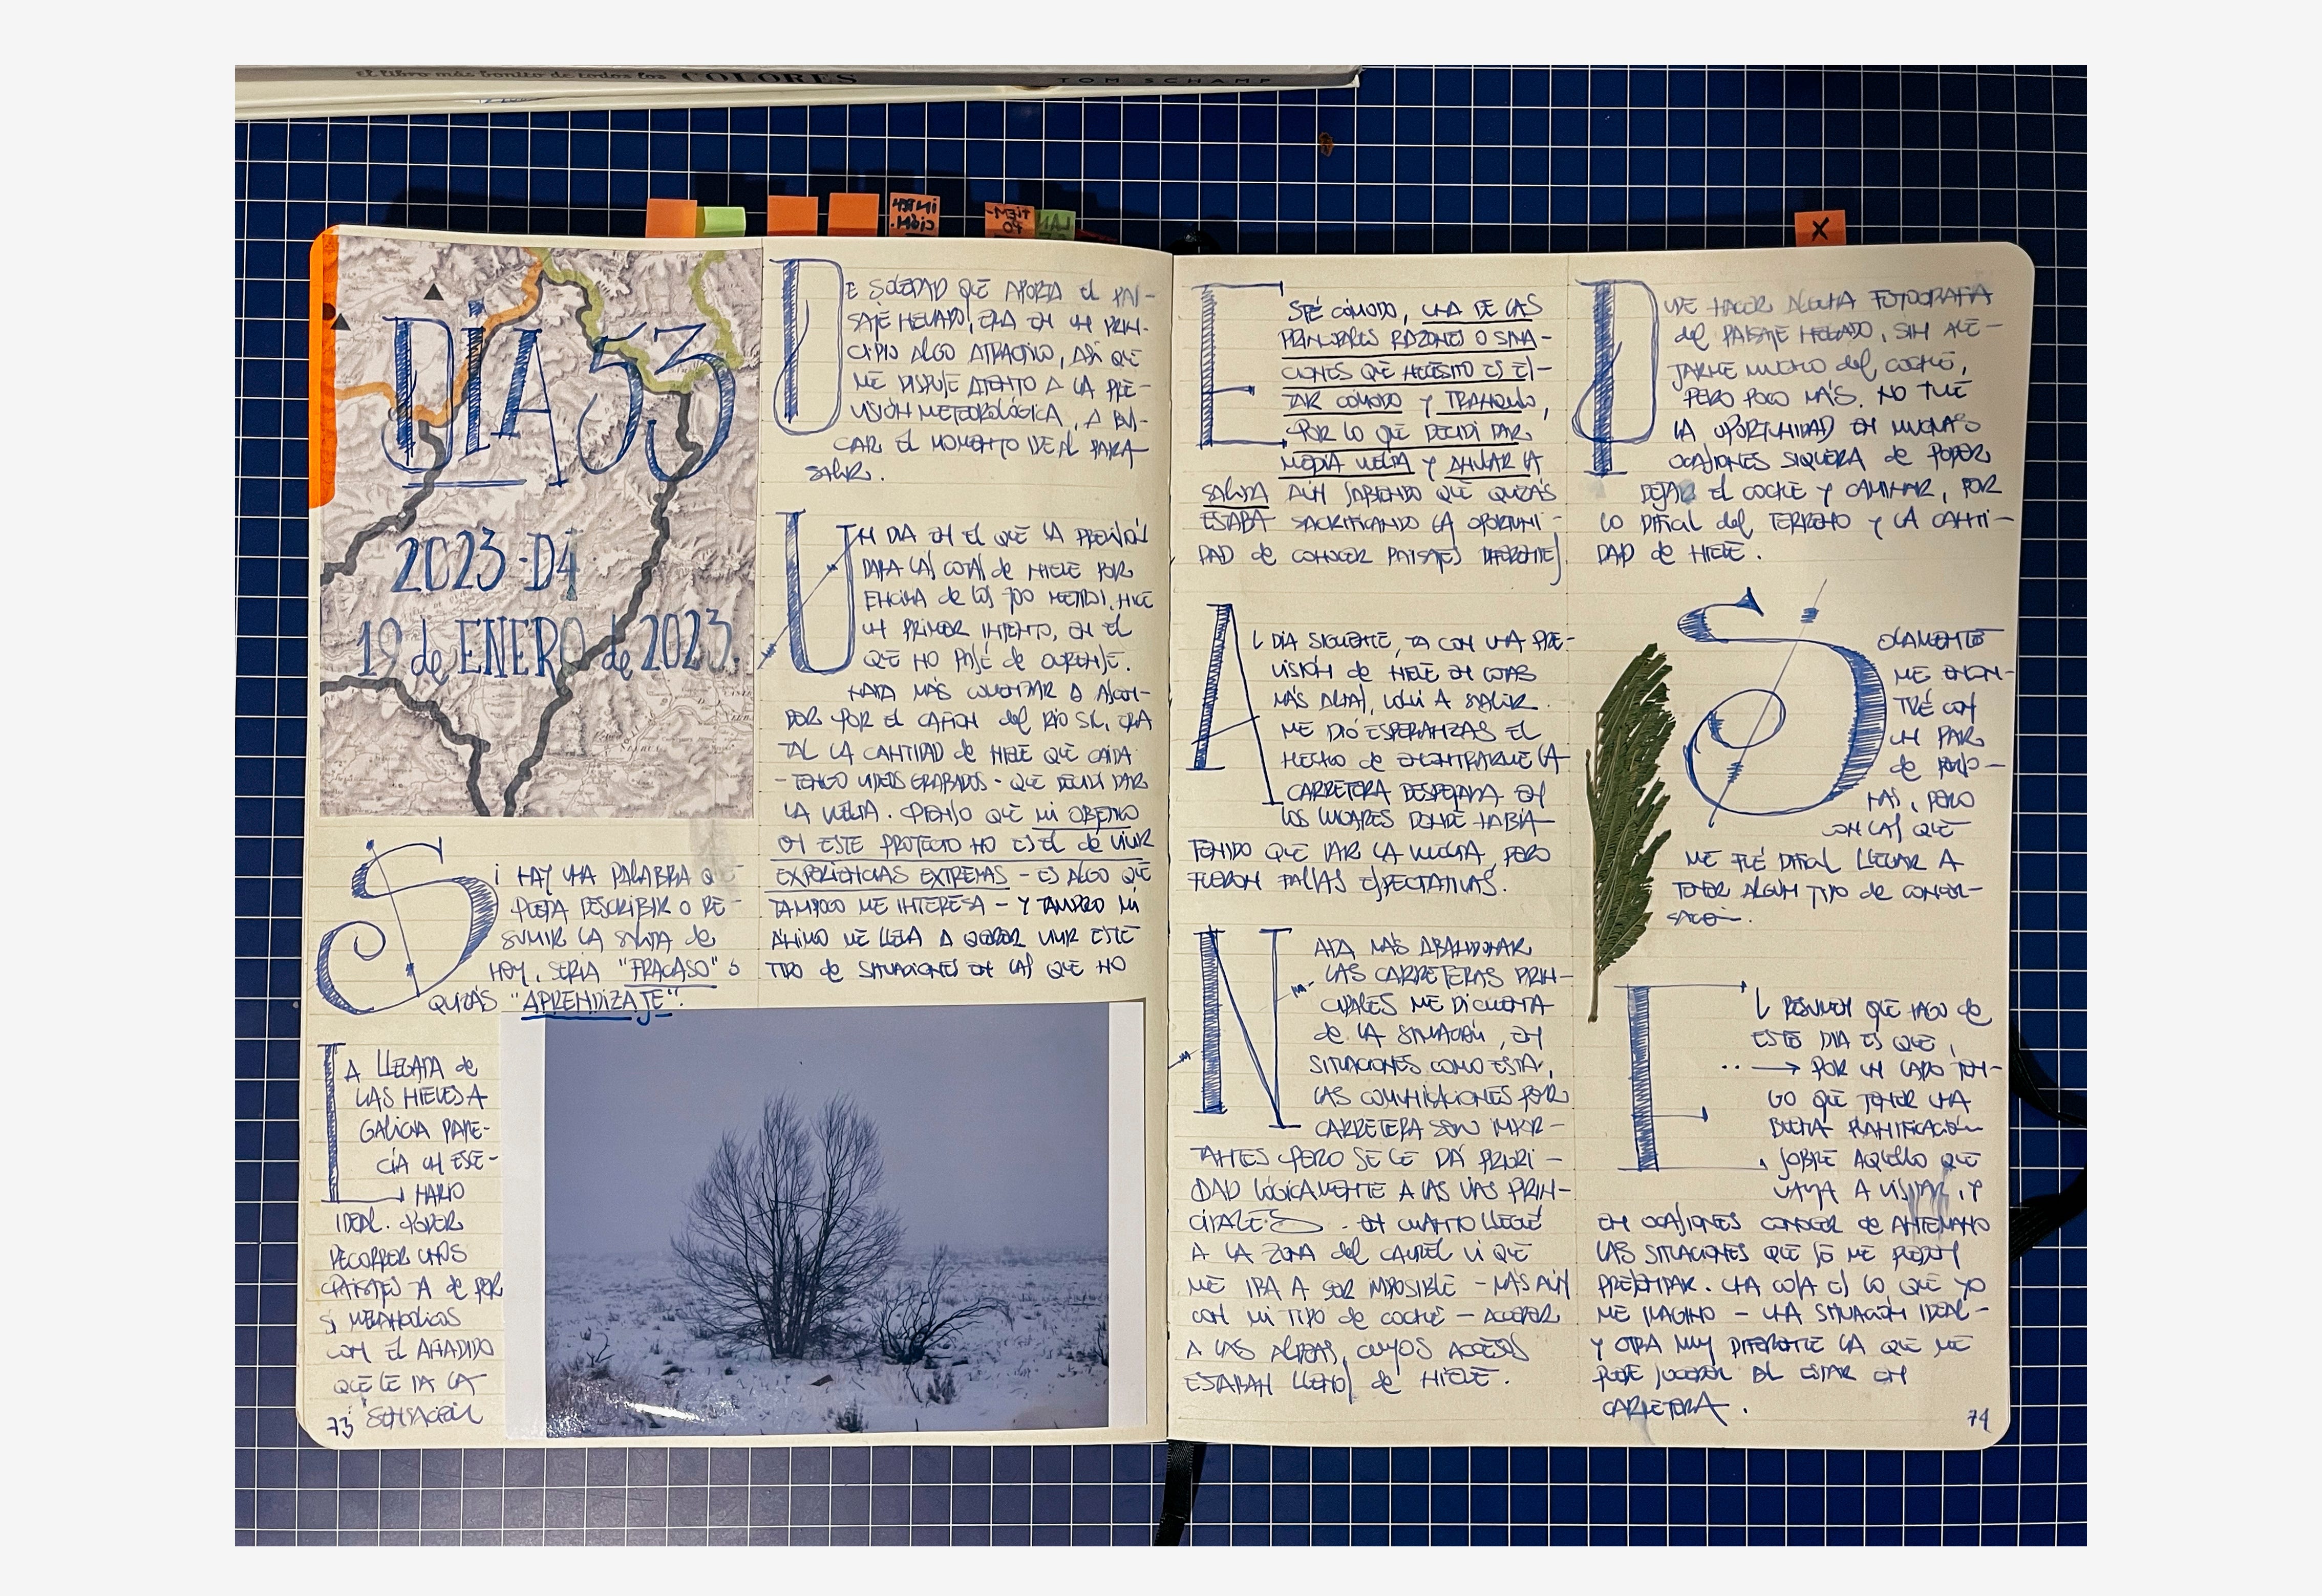 El libro más bonito de todos los COLORES
TOM SCHAMP
X
DÍA 53
2023·D4
19 de ENERO de 2023.
Si HAY UNA PALABRA QUE
PUEDA DESCRIBIR O RE-
SUMIR LA SALIDA de
HOY, SERÍA "FRACASO" ó
QUIZÁS "APRENDIZAJE".
LA LLEGADA de
LAS NIEVES A
GALICIA PARE-
CÍA UN ESCE-
NARIO
IDEAL. PODER
RECORRER UNOS
PAISAJES YA de POR
SÍ MELANCÓLICOS
CON EL AÑADIDO
QUE LE DA LA
SENSACIÓN
73
DE SOLEDAD QUE APORTA El PAI-
SAJE HELADO, ERA EN UN PRIN-
CIPIO ALGO ATRACTIVO, ASÍ QUE
ME DISPUSE ATENTO A LA PRE-
VISIÓN METEOROLÓGICA, A BUS-
CAR EL MOMENTO IDEAL PARA
SALIR.
UN DIA EN EL QUE LA PREVISIÓN
DABA LAS COTAS de NIEVE POR
ENCIMA de LOS 700 METROS, HICE
UN PRIMER INTENTO, EN EL
QUE NO PASÉ de OURENSE.
NADA MÁS COMENZAR A ASCEN-
DER POR EL CAÑON del RIO SIL, ERA
TAL LA CANTIDAD de NIEVE QUE CAÍDA
- TENGO VIDEOS GRABADOS - QUE DECIDÍ DAR
LA VUELTA. PIENSO QUE MI OBJETIVO
EN ESTE PROYECTO NO ES EL de VIVIR
EXPERIENCIAS EXTREMAS - ES ALGO QUE
TAMPOCO ME INTERESA - Y TAMPOCO MI
ÁNIMO ME LLEVA A QUERER VIVIR ESTE
TIPO de SITUACIONES EN LAS QUE NO
ESTÉ CÓMODO, UNA DE LAS
PRINCIPALES RAZONES O SITUA-
CIONES QUE NECESITO ES ES-
TAR CÓMODO Y TRANQUILO,
POR LO QUE DECIDÍ DAR
MEDIA VUELTA Y ANULAR LA
SALIDA AÚN SABIENDO QUE QUIZÁS
ESTABA SACRIFICANDO LA OPORTUNI-
DAD de CONOCER PAISAJES DIFERENTES.
AL DÍA SIGUIENTE, YA CON UNA PRE-
VISIÓN de NIEVE EN COTAS
MÁS ALTAS, VOLVÍ A SALIR.
ME DIÓ ESPERANZAS EL
HECHO de ENCONTRARME LA
CARRETERA DESPEJADA EN
LOS LUGARES DONDE HABÍA
TENIDO QUE DAR LA VUELTA, PERO
FUERON FALSAS EXPECTATIVAS.
NADA MÁS ABANDONAR
LAS CARRETERAS PRIN-
CIPALES ME DI CUENTA
de LA SITUACIÓN, EN
SITUACIONES COMO ESTA,
LAS COMUNICACIONES POR
CARRETERA SON IMPOR-
TANTES PERO SE LE DÁ PRIORI-
DAD LÓGICAMENTE A LAS VÍAS PRIN-
CIPALES. EN CUANTO LLEGUÉ
A LA ZONA del CAUREL VI QUE
ME IBA A SER IMPOSIBLE - MÁS AÚN
CON MI TIPO de COCHE - ACCEDER
A LAS ALDEAS, CUYOS ACCESOS
ESTABAN LLENOS de NIEVE.
PUDE HACER ALGUNA FOTOGRAFÍA
del PAISAJE HELADO, SIN ALE-
JARME MUCHO del COCHE,
PERO POCO MÁS. NO TUVE
LA OPORTUNIDAD EN MUCHAS
OCASIONES SIQUIERA de PODER
DEJAR EL COCHE Y CAMINAR, POR
LO DIFÍCIL del TERRENO Y LA CANTI-
DAD de NIEVE.
SOLAMENTE
ME ENCON-
TRÉ CON
UN PAR
de PERSO-
NAS, PERO
CON LAS QUE
ME FUÉ DIFÍCIL LLEGAR A
TENER ALGÚN TIPO de CONVER-
SACIÓN.
EL RESUMEN QUE HAGO de
ESTE DIA ES QUE,
··→ POR UN LADO TEN-
GO QUE TENER UNA
BUENA PLANIFICACIÓN
SOBRE AQUELLO QUE
VAYA A VISITAR, Y
EN OCASIONES CONOCER de ANTEMANO
LAS SITUACIONES QUE SE ME PUEDEN
PRESENTAR. UNA COSA ES LO QUE YO
ME IMAGINO - UNA SITUACIÓN IDEAL -
Y OTRA MUY DIFERENTE LA QUE ME
PUEDE SUCEDER AL ESTAR EN
CARRETERA.
74